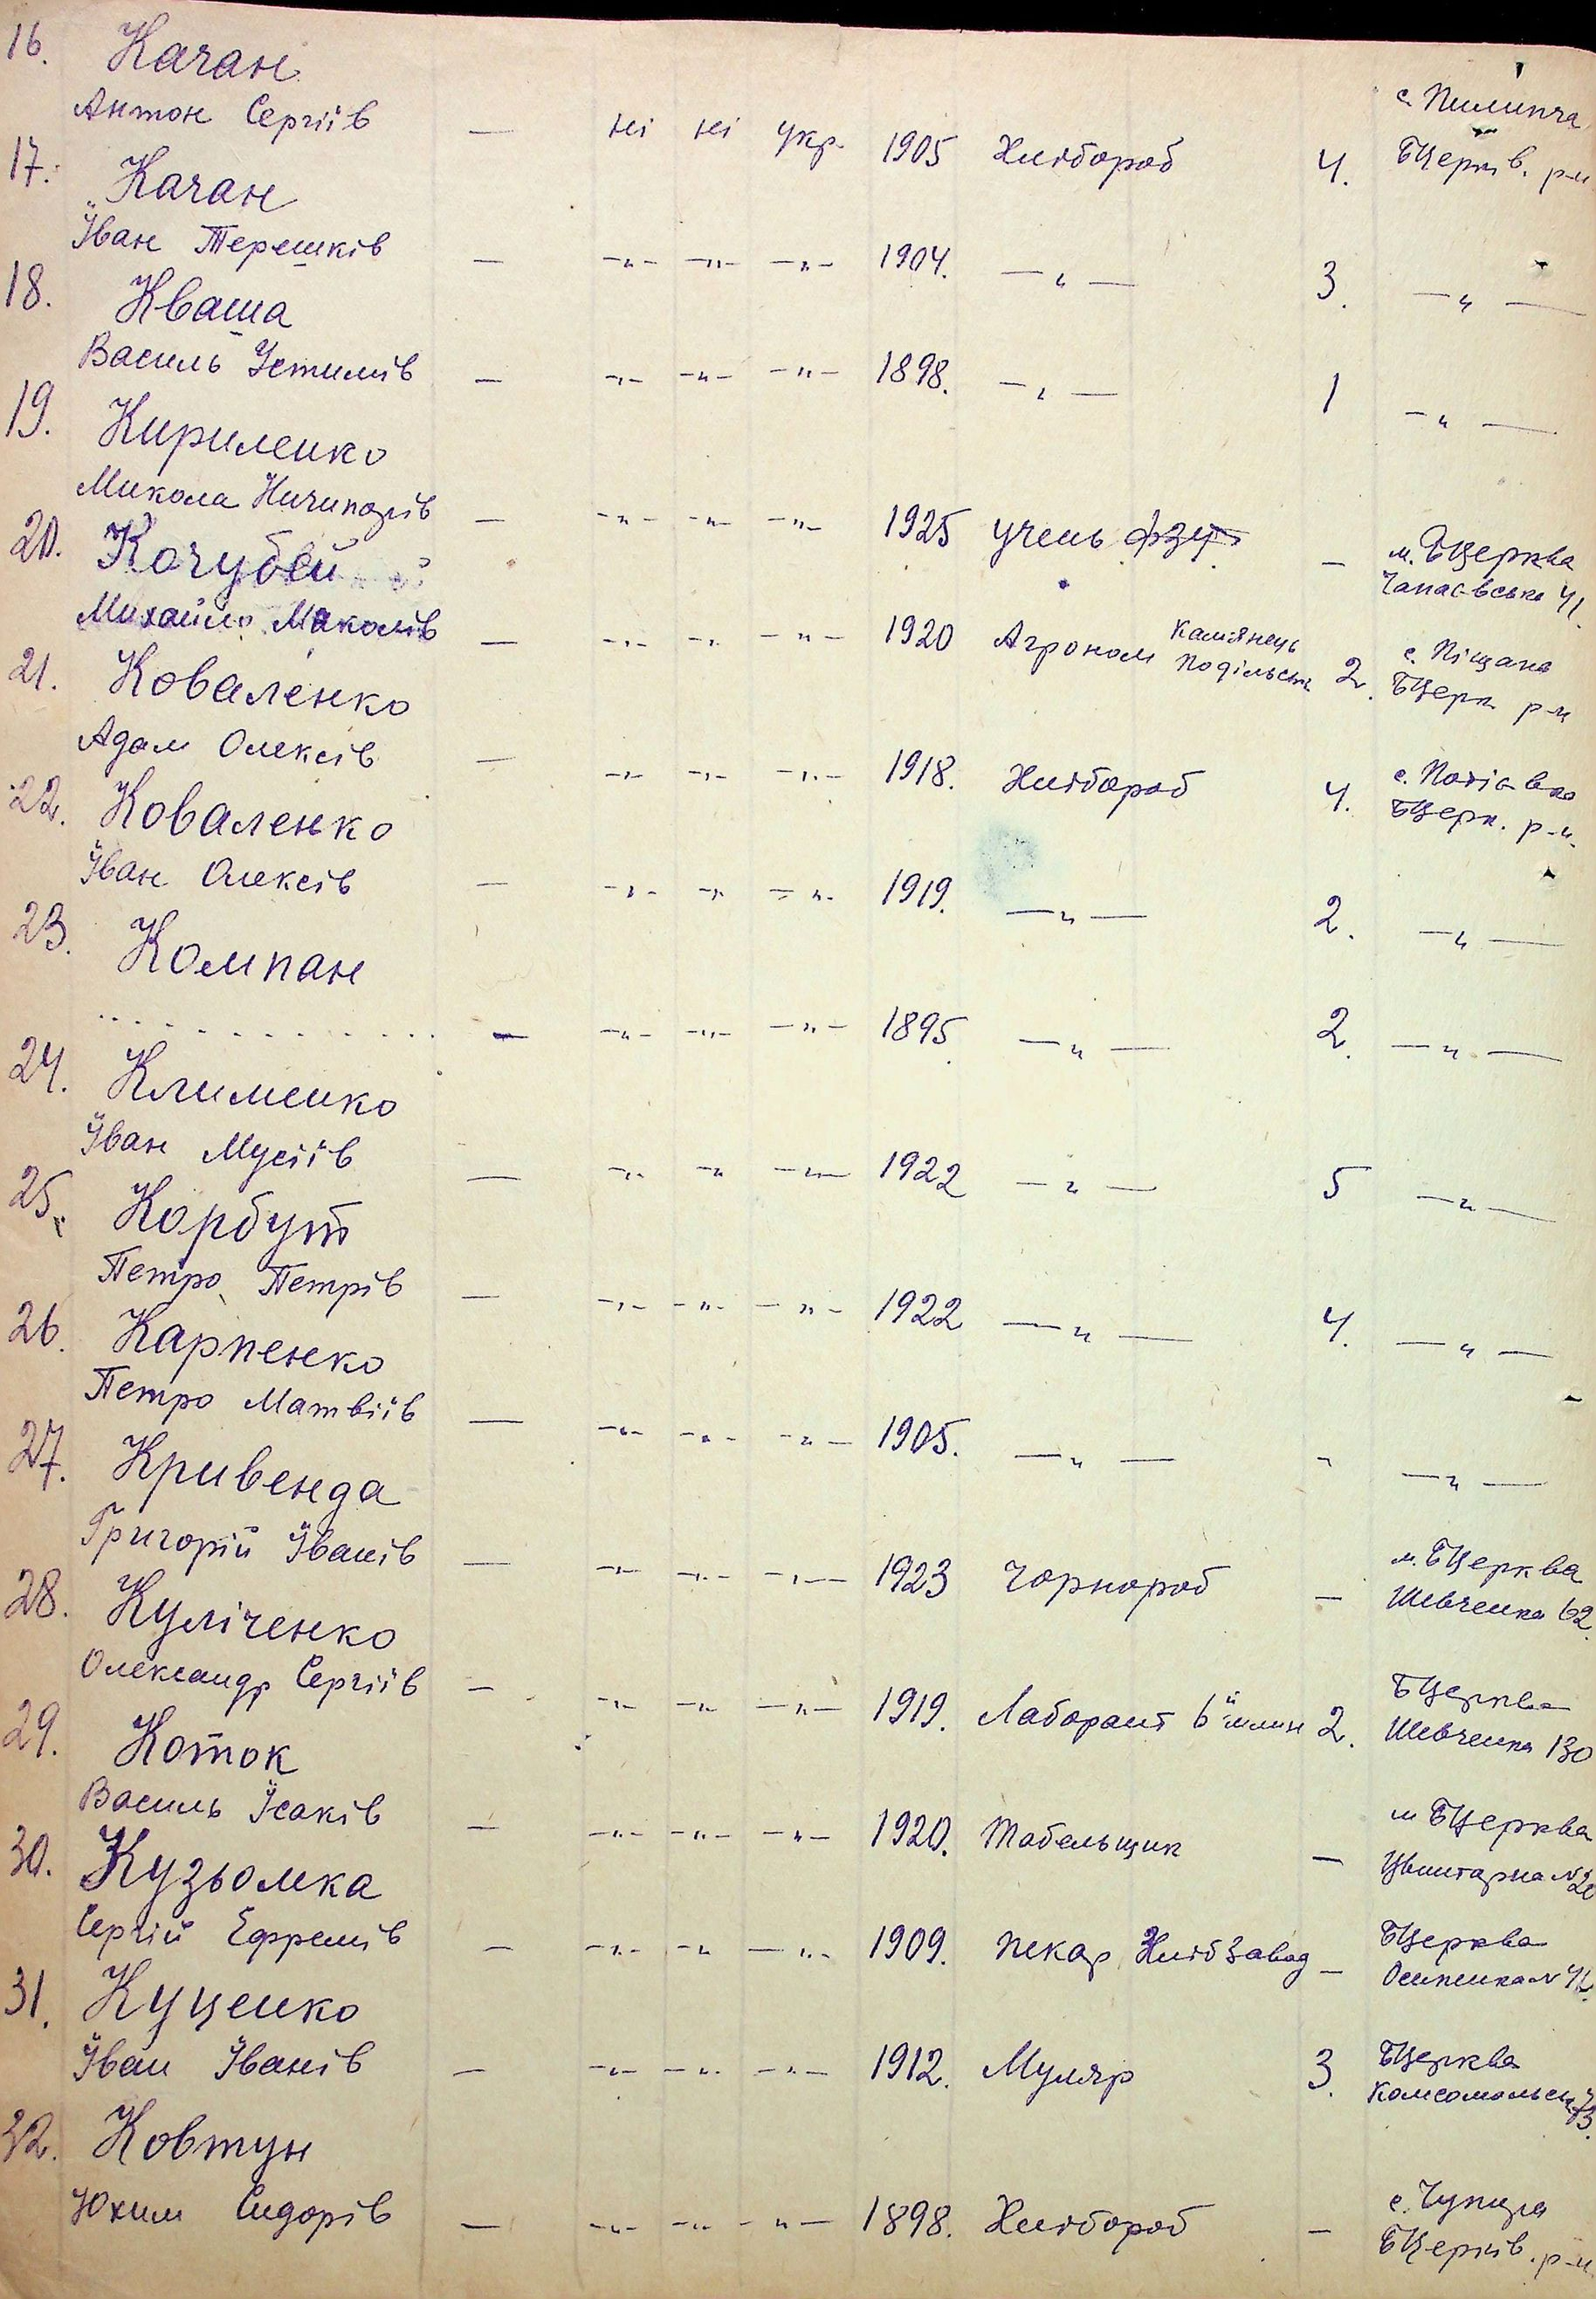 16. Качан
с. Пилипча
Антон Сергіїв — ні ні укр. 1905 Хлібороб 4. БЦеркв. р-н
17. Качан
Іван Терешків — -„- -„- -„- 1904. —„— 3. —„—
18. Кваша
Василь Устимів — -„- -„- -„- 1898. —„— 1 —„—
19. Кириленко
Микола Ничипорів — -„- -„- -„- 1925 учень ФЗУ — м. БЦерква
Чапаєвська 41.
20. Кочубей
Михайло Миколів — -„- -„- -„- 1920 Агроном Камянець Подільськ 2. с. Піщана
БЦерк р-н
21. Коваленко
Адам Олексів — -„- -„- -„- 1918. Хлібороб 4. с.
БЦерк. р-н.
22. Коваленко
Іван Олексів — -„- -„- -„- 1919. —„— 2. —„—
23. Компан
. . . . . . . . . . . . . — -„- -„- -„- 1895 —„— 2. —„—
24. Клименко
Іван Мусіїв — -„- -„- -„- 1922 —„— 5 —„—
25. Корбут
Петро Петрів — -„- -„- -„- 1922 —„— 4. —„—
26. Карпенко
Петро Матвіїв — -„- -„- -„- 1905. —„— - —„—
27. Кривенда
Григорій Іванів — -„- -„- -„- 1923 Чорнороб — м. БЦерква
Шевченка 62.
28. Куліченко
Олександр Сергіїв — -„- -„- -„- 1919. Лаборант 6й млин 2. БЦерква
Шевченка 130
29. Коток
Василь Ісаків — -„- -„- -„- 1920. Табельщик — м БЦерква
Цвинтарна № 20
30. Кузьомка
Сергій Ефремів — -„- -„- -„- 1909. пекар Хлібзавод — БЦерква
Осипенка №
31. Куценко
Іван Іванів — -„- -„- -„- 1912. Муляр 3. БЦерква
Комсомольськ 73.
32. Ковтун
Юхим Сидорів — -„- -„- -„- 1898. Хлібороб — с. Чупира
БЦерків. р-н.